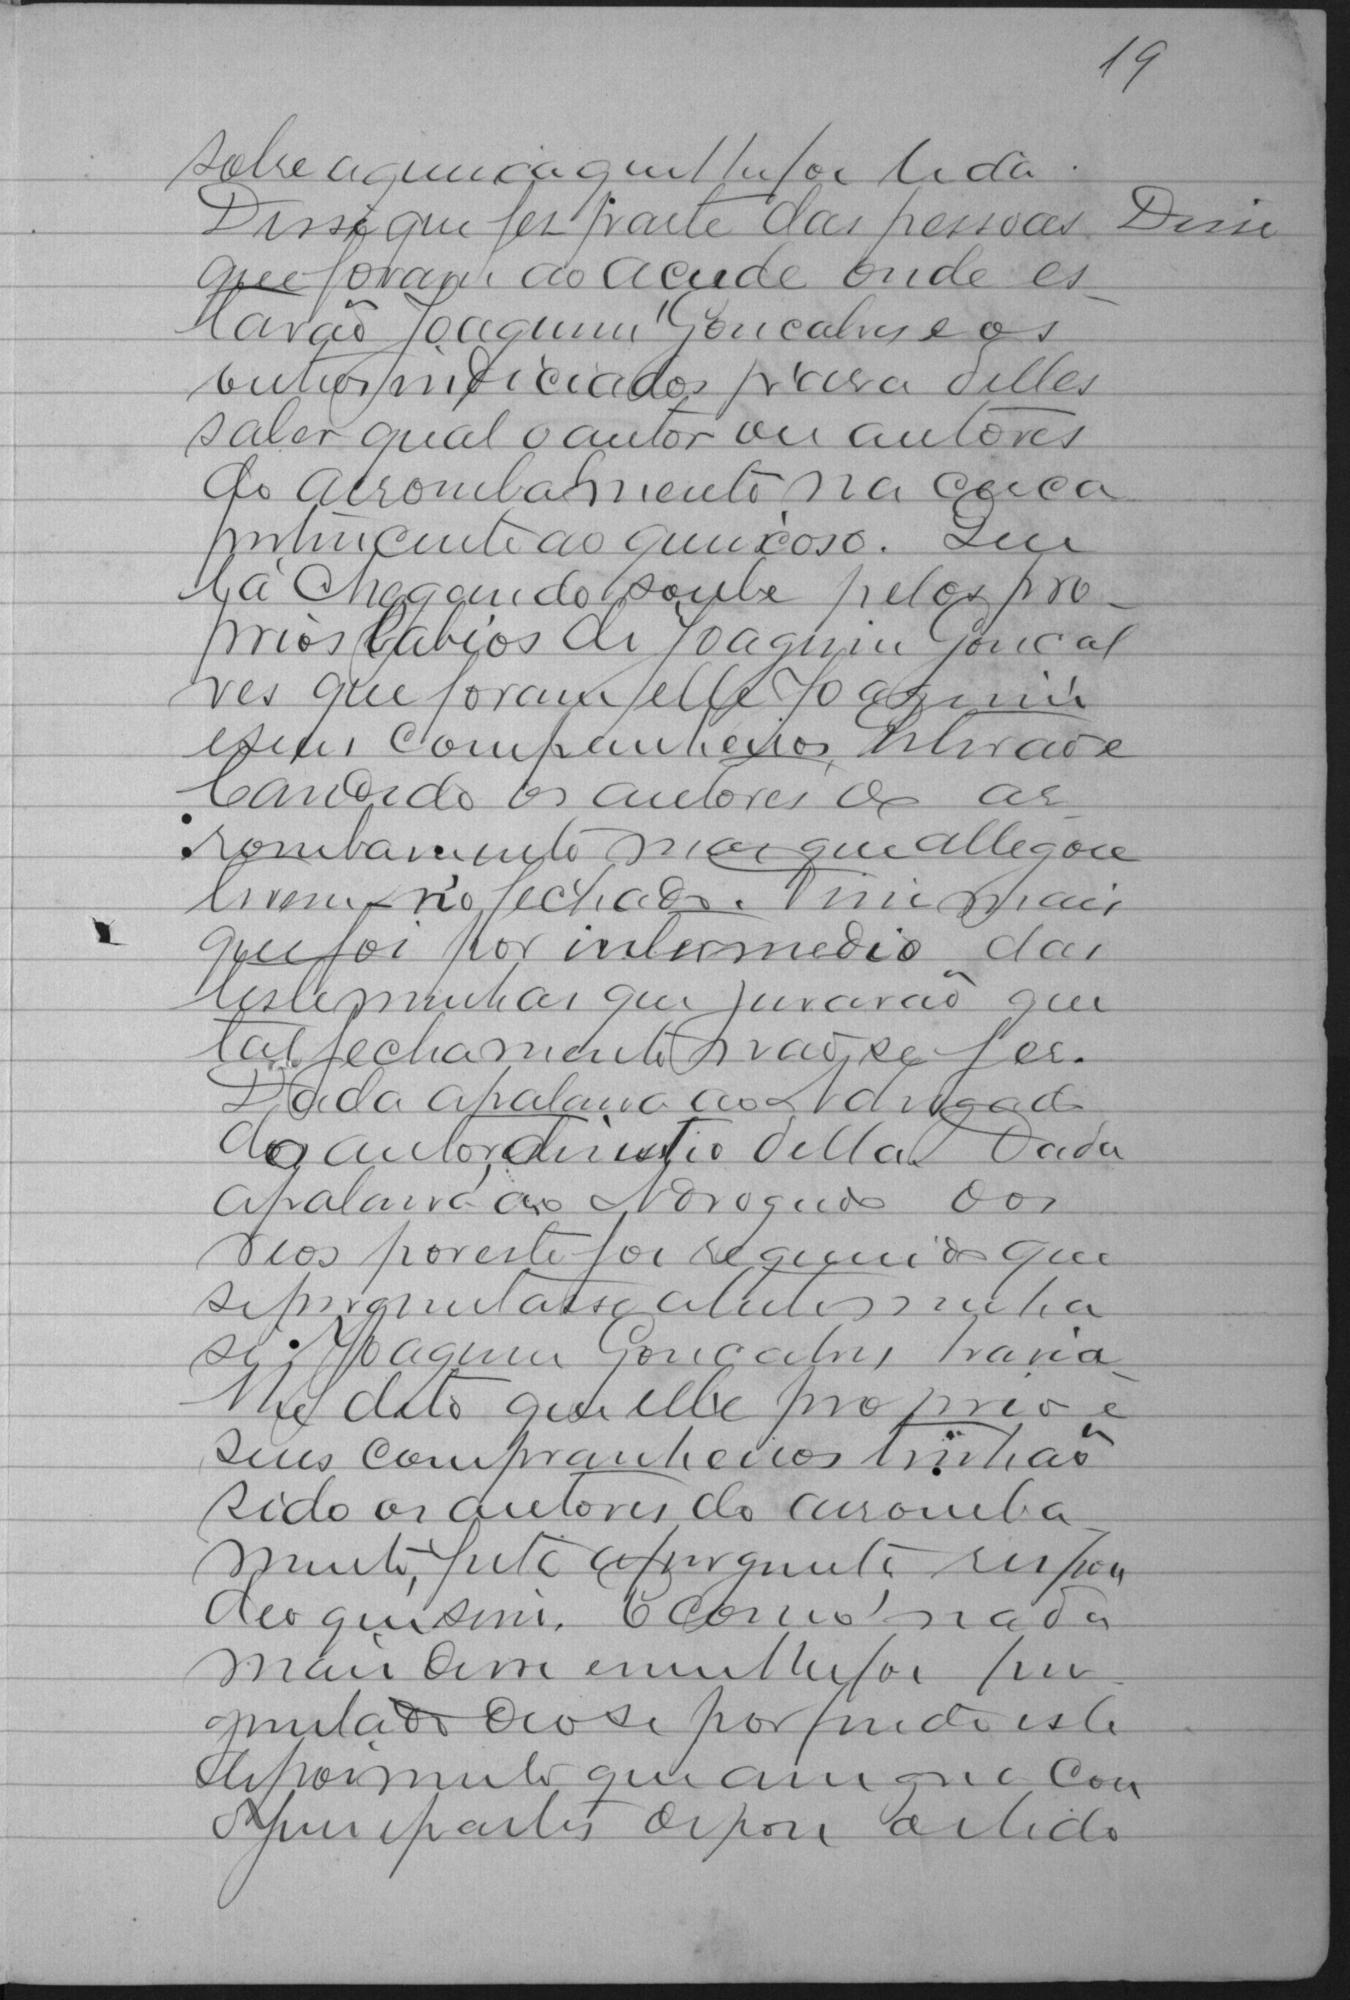 19
sobre a queixa que lhe foi lida.
Disse que fez parte das pessoas Disse
que foram ao açude onde es-
tavão Joaquim Goncalves e os
outros indiciados para delles
saber qual o autor ou autores
do arrombamento na cerca
pertencente ao queixoso. Que
lá chegando soube pelos pro-
prios labios de Joaquim Goncal
ves que foram elle Joaquim
e seus companheiros, e
Candido os autores do ar-
rombamento mas que allegou
tiverem-no fechado. Disse mais
que foi por intermedio das
testeminhas que jurarão que
tal fechamento não se fez.
Dada a palavra ao Advogado
do autor, desistio della. Dada
a palavra ao Advogado dos
reos por este foi requerido que
se perguntasse a testeminha
se Joaquim Goncalves havia
lhe dito que elle proprio e
seus companheiros tinhão
sido os autores do arromba-
mento, feita a pergunta respon
deo que sim. E como nada
mais disse e nem lhe foi per-
guntado deo-se por findo este
depoimento que assigna com
o Juiz e partes depois de lido